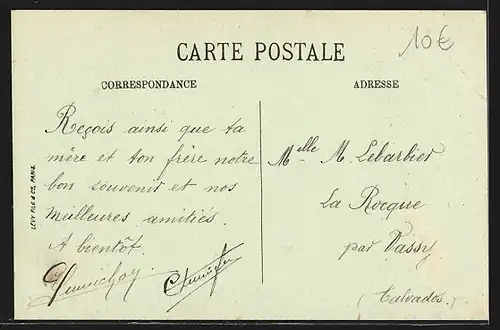 CARTE POSTALE
10€
CORRESPONDANCE
ADRESSE
Reçois ainsi que ta
mère et ton frère notre
bon souvenir et nos
meilleures amitiés.
A bientôt.
Melle M. Lebarbier
La Rocque
par Vassy
(Calvados.)
LÉVY FILS & CO, PARIS